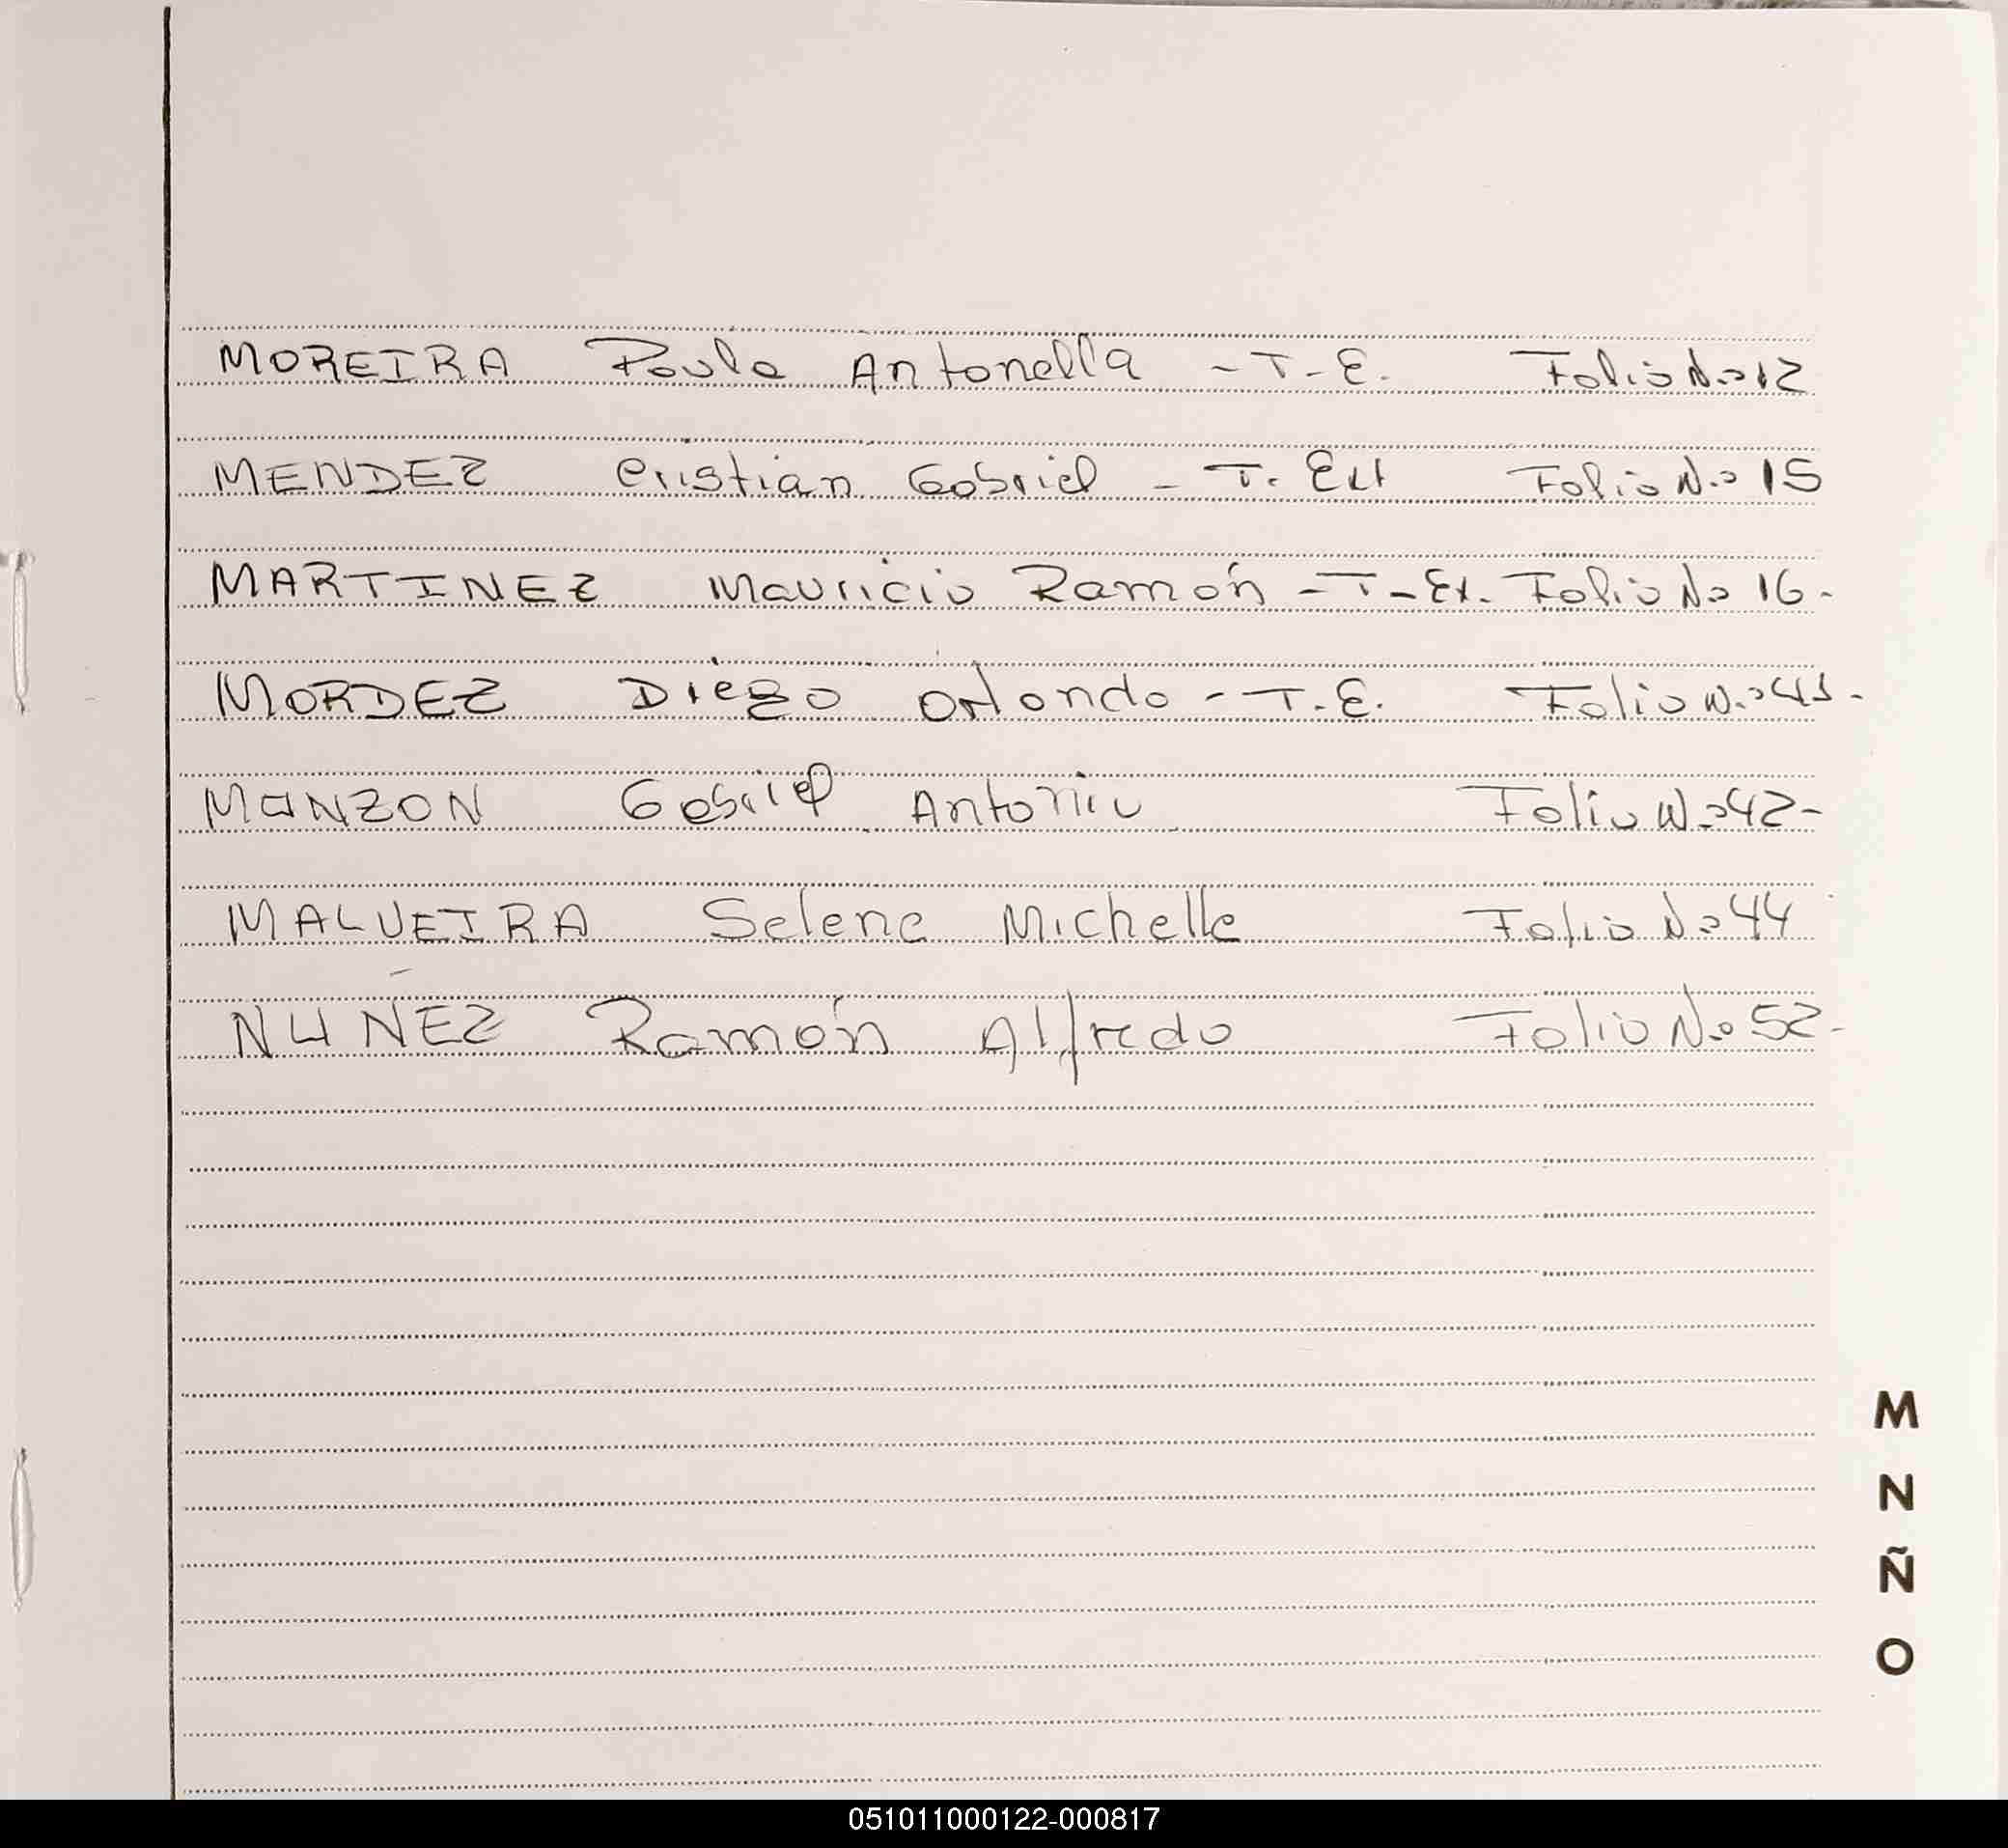 MOREIRA Paula Antonella - T-E. Folio N.º 12
MENDEZ Cristian Gabriel - T. Ext Folio N.º 15
MARTINEZ Mauricio Ramón - T-Ex. Folio Nº 16-
MORDEZ Diego Orlando - T.E. Folio N.º 41-
MANZON Gabriel Antonio Folio N.º 42-
MALVEIRA Selene Michelle Folio Nº 44
NUÑEZ Ramón Alfredo Folio Nº 52-
M
N
Ñ
O
051011000122-000817